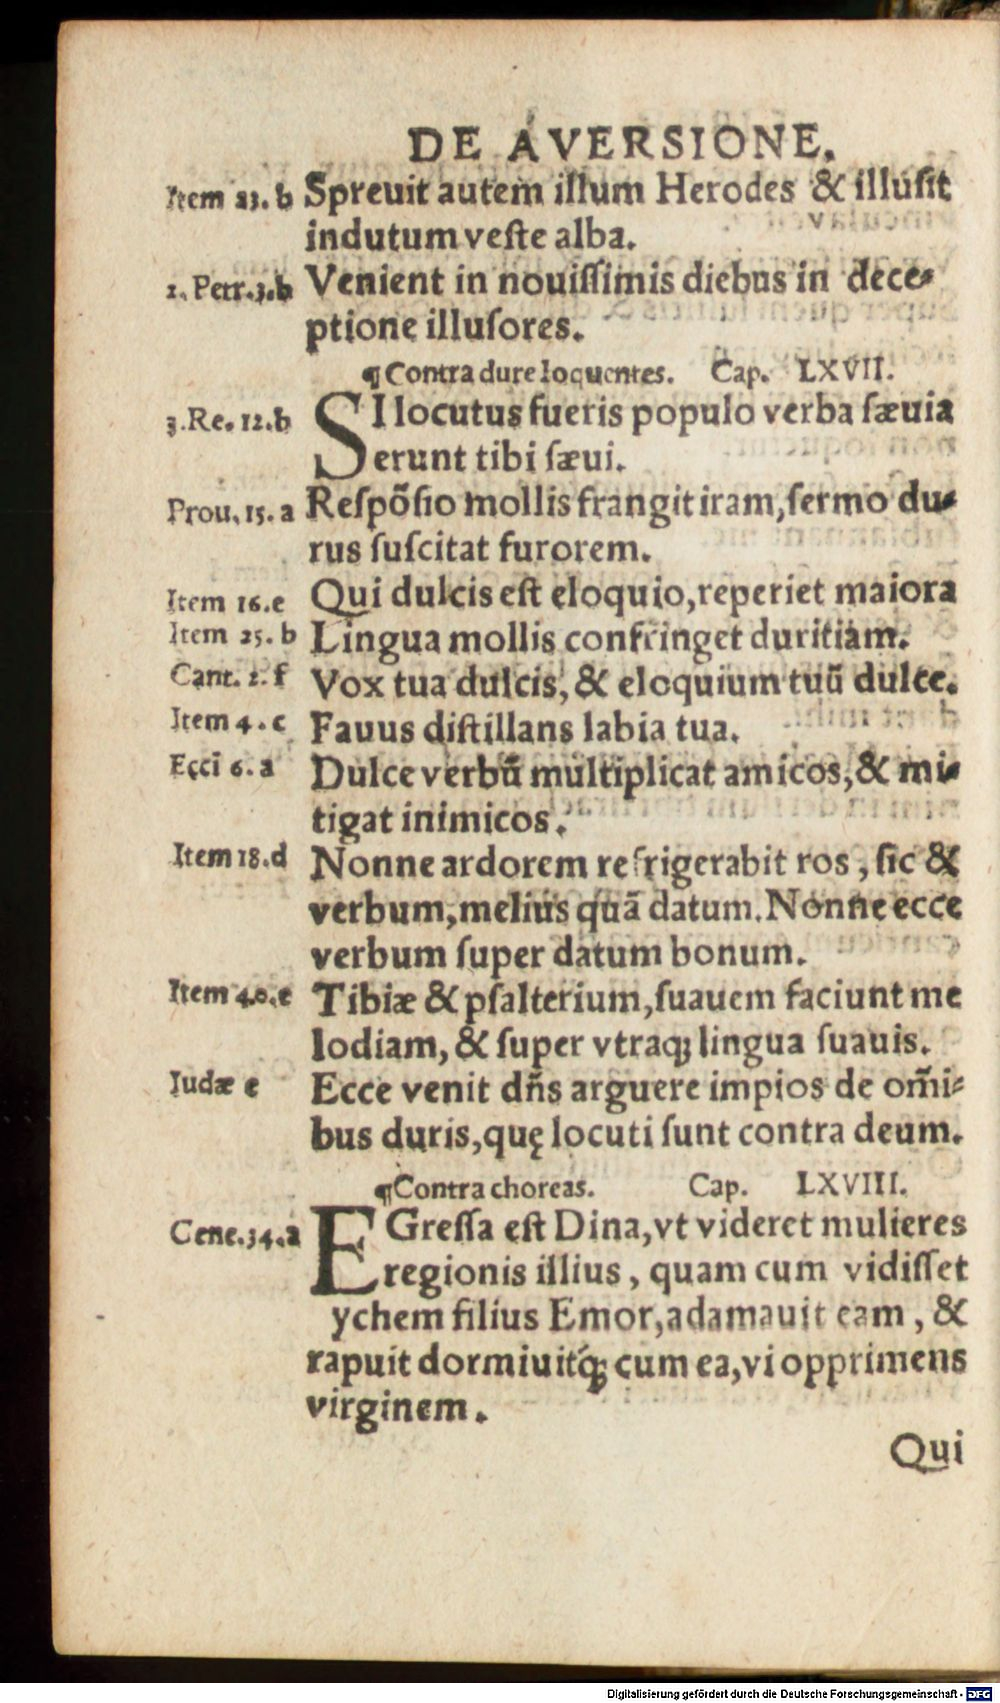 DE AVERSIONE.
Item 23. b Spreuit autem illum Herodes & illuſit
indutum veſte alba.
2. Petr. 3. b Venient in nouiſſimis diebus in dece⸗
ptione illuſores.
¶ Contra dure loquentes. Cap. LXVII.
3. Re. 12. b SI locutus fueris populo verba ſæuia
erunt tibi ſæui.
Prou. 15. a Reſpõſio mollis frangit iram, ſermo du⸗
rus ſuſcitat furorem.
Item 16. e Qui dulcis eſt eloquio, reperiet maiora
Item 25. b Lingua mollis confringet duritiam.
Cant. 2. f Vox tua dulcis, & eloquium tuũ dulce.
Item 4. c Fauus diſtillans labia tua.
Ecci 6. a Dulce verbũ multiplicat amicos, & mi⸗
tigat inimicos.
Item 18. d Nonne ardorem refrigerabit ros, ſic &
verbum, melius quã datum. Nonne ecce
verbum ſuper datum bonum.
Item 40. e Tibiæ & pſalterium, ſuauem faciunt me
lodiam, & ſuper vtraqꝫ lingua ſuauis.
Iudæ e Ecce venit dñs arguere impios de om̃i⸗
bus duris, quę locuti ſunt contra deum.
¶ Contra choreas. Cap. LXVIII.
Gene. 34. a EGreſſa eſt Dina, vt videret mulieres
regionis illius, quam cum vidiſſet
ychem filius Emor, adamauit eam, &
rapuit dormiuitq́ꝫ cum ea, vi opprimens
virginem.
Qui
Digitalisierung gefördert durch die Deutsche Forschungsgemeinschaft - DFG